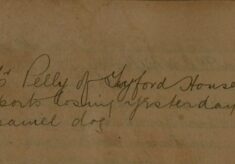 Pelly of Twyford House
ports losing yesterday
spaniel dog